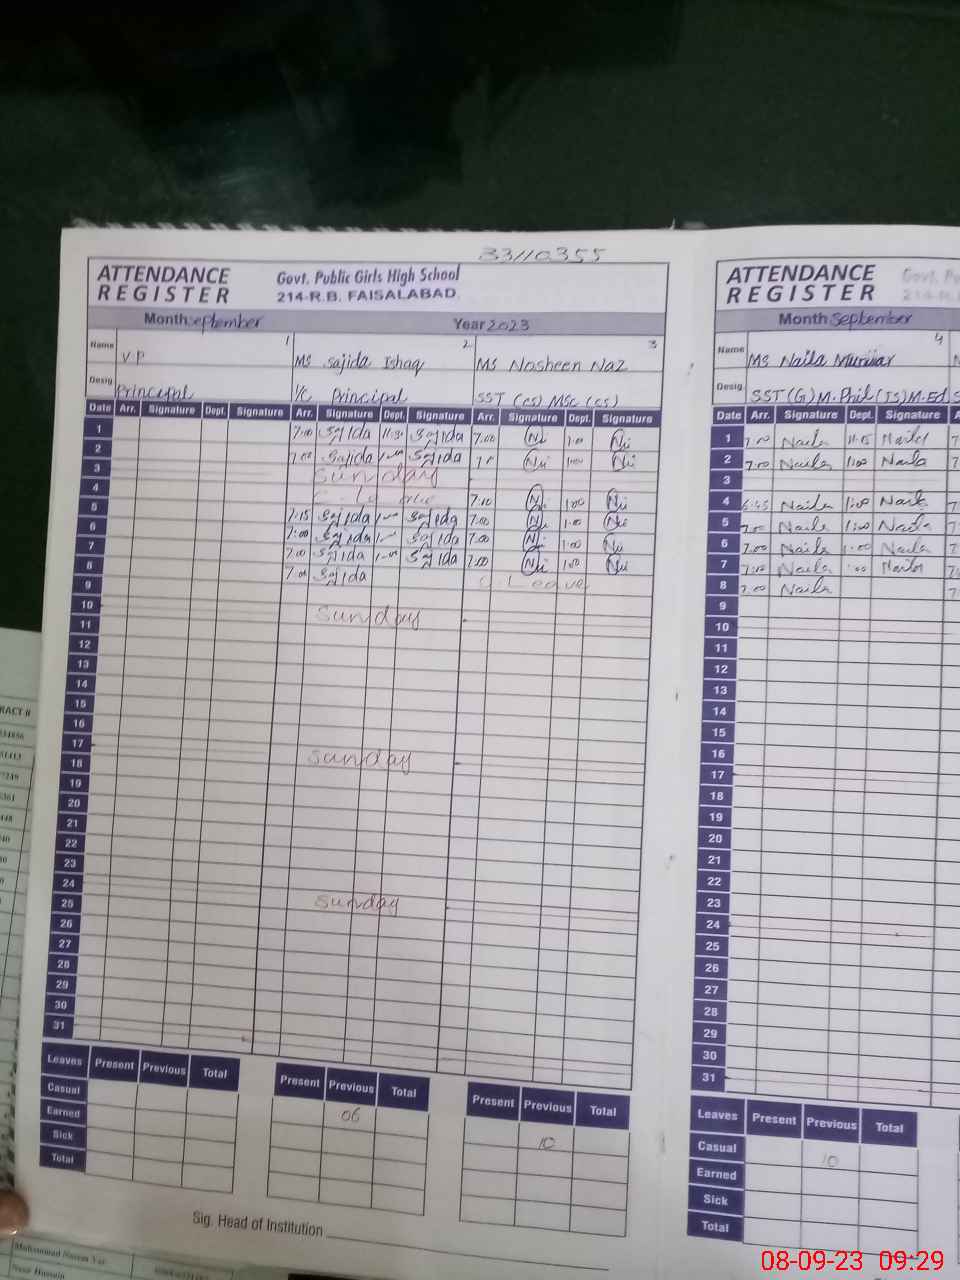 33110355
ATTENDANCE REGISTER
Govt. Public Girls High School
214-R.B. FAISALABAD.
Month September Year 2023
Name 1 V P 2 MS Sajida Ishaq 3 MS Nosheen Naz
Desig Principal I/C Principal SST (CS) MSc (CS)
Date Arr. Signature Dept. Signature Arr. Signature Dept. Signature Arr. Signature Dept. Signature
1 7:00 Sajida 11:30 Sajida 7:00
2 7:00 Sajida Sajida 1:00
3 Sunday
4 7:10 1:00
5 7:15 Sajida Sajida 7:00 1:00
6 7:00 Sajida Sajida 7:00 1:00
7 7:00 Sajida Sajida 7:00 1:00
8 7:00 Sajida C. Leave
9
10 Sunday
11
12
13
14
15
16
17 Sunday
18
19
20
21
22
23
24 Sunday
25
26
27
28
29
30
31
Leaves Present Previous Total Present Previous Total Present Previous Total
Casual 06 10
Earned
Sick
Total
Sig. Head of Institution
ATTENDANCE REGISTER
Month September
4
Name MS Naila
Desig SST (G) M.Phil (IS) M.Ed
Date Arr. Signature Dept. Signature
1 7:00 Naila 11:15 Naila
2 7:00 Naila 1:00 Naila
3
4 6:45 Naila 1:00 Naila
5 7:00 Naila 1:00 Naila
6 7:00 Naila 1:00 Naila
7 7:00 Naila 1:00 Naila
8 7:00 Naila
9
10
11
12
13
14
15
16
17
18
19
20
21
22
23
24
25
26
27
28
29
30
31
Leaves Present Previous Total
Casual 10
Earned
Sick
Total
08-09-23 09:29